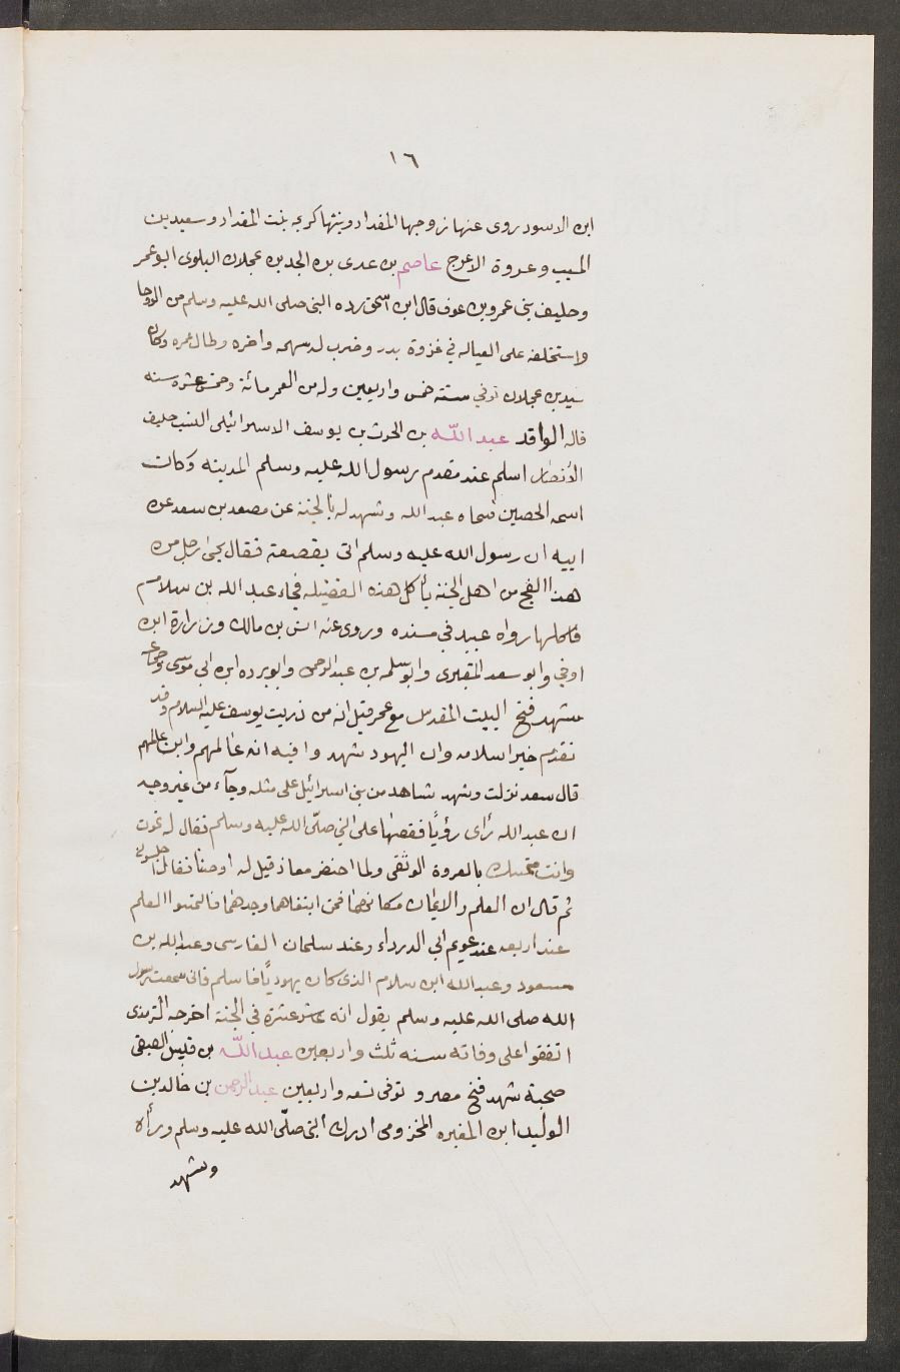 ١٦
ابن الاسود روى عنها زوجها المقداد وبنتها كريمه بنت المقداد وسعيد بن
المسيب وعروة الاعرج عاصم بن عدى بن الجد بن عجلان البلوى ابو عمر
وحليف بنى عمرو بن عوف قال ابن اسحق رده النبى صلى الله عليه وسلم من الروحا
واستخلفه على العياله في غزوة بدر وضرب له سهمه واخره وطال عمره وكان
سيد بن عجلان توفي ستة خمس واربعين وله من العمر مائة وخمس عشره سنه
قاله الواقد عبد الله بن الحرث بن يوسف الاسرائيلى النسب حليف
الأنصار اسلم عند مقدم رسول الله عليه وسلم المدينه وكان
اسمه الحصين فسماه عبد الله وشهد له بالجنة عن مصعد بن سعد عن
ابيه ان رسول الله عليه وسلم اتى بقصعة فقال يجئ رجل من
هذا الفج من اهل الجنة يأكل هذه الفضيله فجاء عبد الله بن سلام
فاكلها رواه عبيد في مسنده وروى عنه انس بن مالك وزرارة ابن
اوفي وابو سعد المقبرى وابو سلمه بن عبد الرحمن وابو برده ابن ابى موسى وجماعه
شهد فتح البيت المقدس مع عمر قيل انه من ذريت يوسف عليه السلام وقد
تقدم خبر اسلامه وان اليهود شهدوا فيه انه عالمهم وابن عالمهم
قال سعد نزلت وشهد شاهد من بنى اسرائيل على مثله وجآء من غير وجه
ان عبد الله رأى رؤيًا فقصها على النبي صلّى الله عليه وسلم فقال له تموت
وانت متمسك بالعروة الوثقى ولما احتضر معاذ قيل له اوصنا فقال اجلسونى
ثم قال ان العلم والايمان مكانهما فمن ابتغاهما وجدهما فالتمسوا العلم
عند اربعه عند عويم ابي الدرداء وعند سلمان الفارسى وعبد الله بن
مسعود وعبد الله ابن سلام الذى كان يهوديًا فاسلم فانى سمعت رسول
الله صلى الله عليه وسلم يقول انه عاشر عشرة في الجنة اخرجه الترمذى
اتفقوا على وفاته سنه ثلث واربعين عبد اللّه بن قليس الضبقى
صحبة شهد فتح مصر و توفى تسعه واربعين عبد الرحمن بن خالد بن
الوليد ابن المغيره المخزومى ادرك النبى صلّى الله عليه وسلم ورأه
وشهد